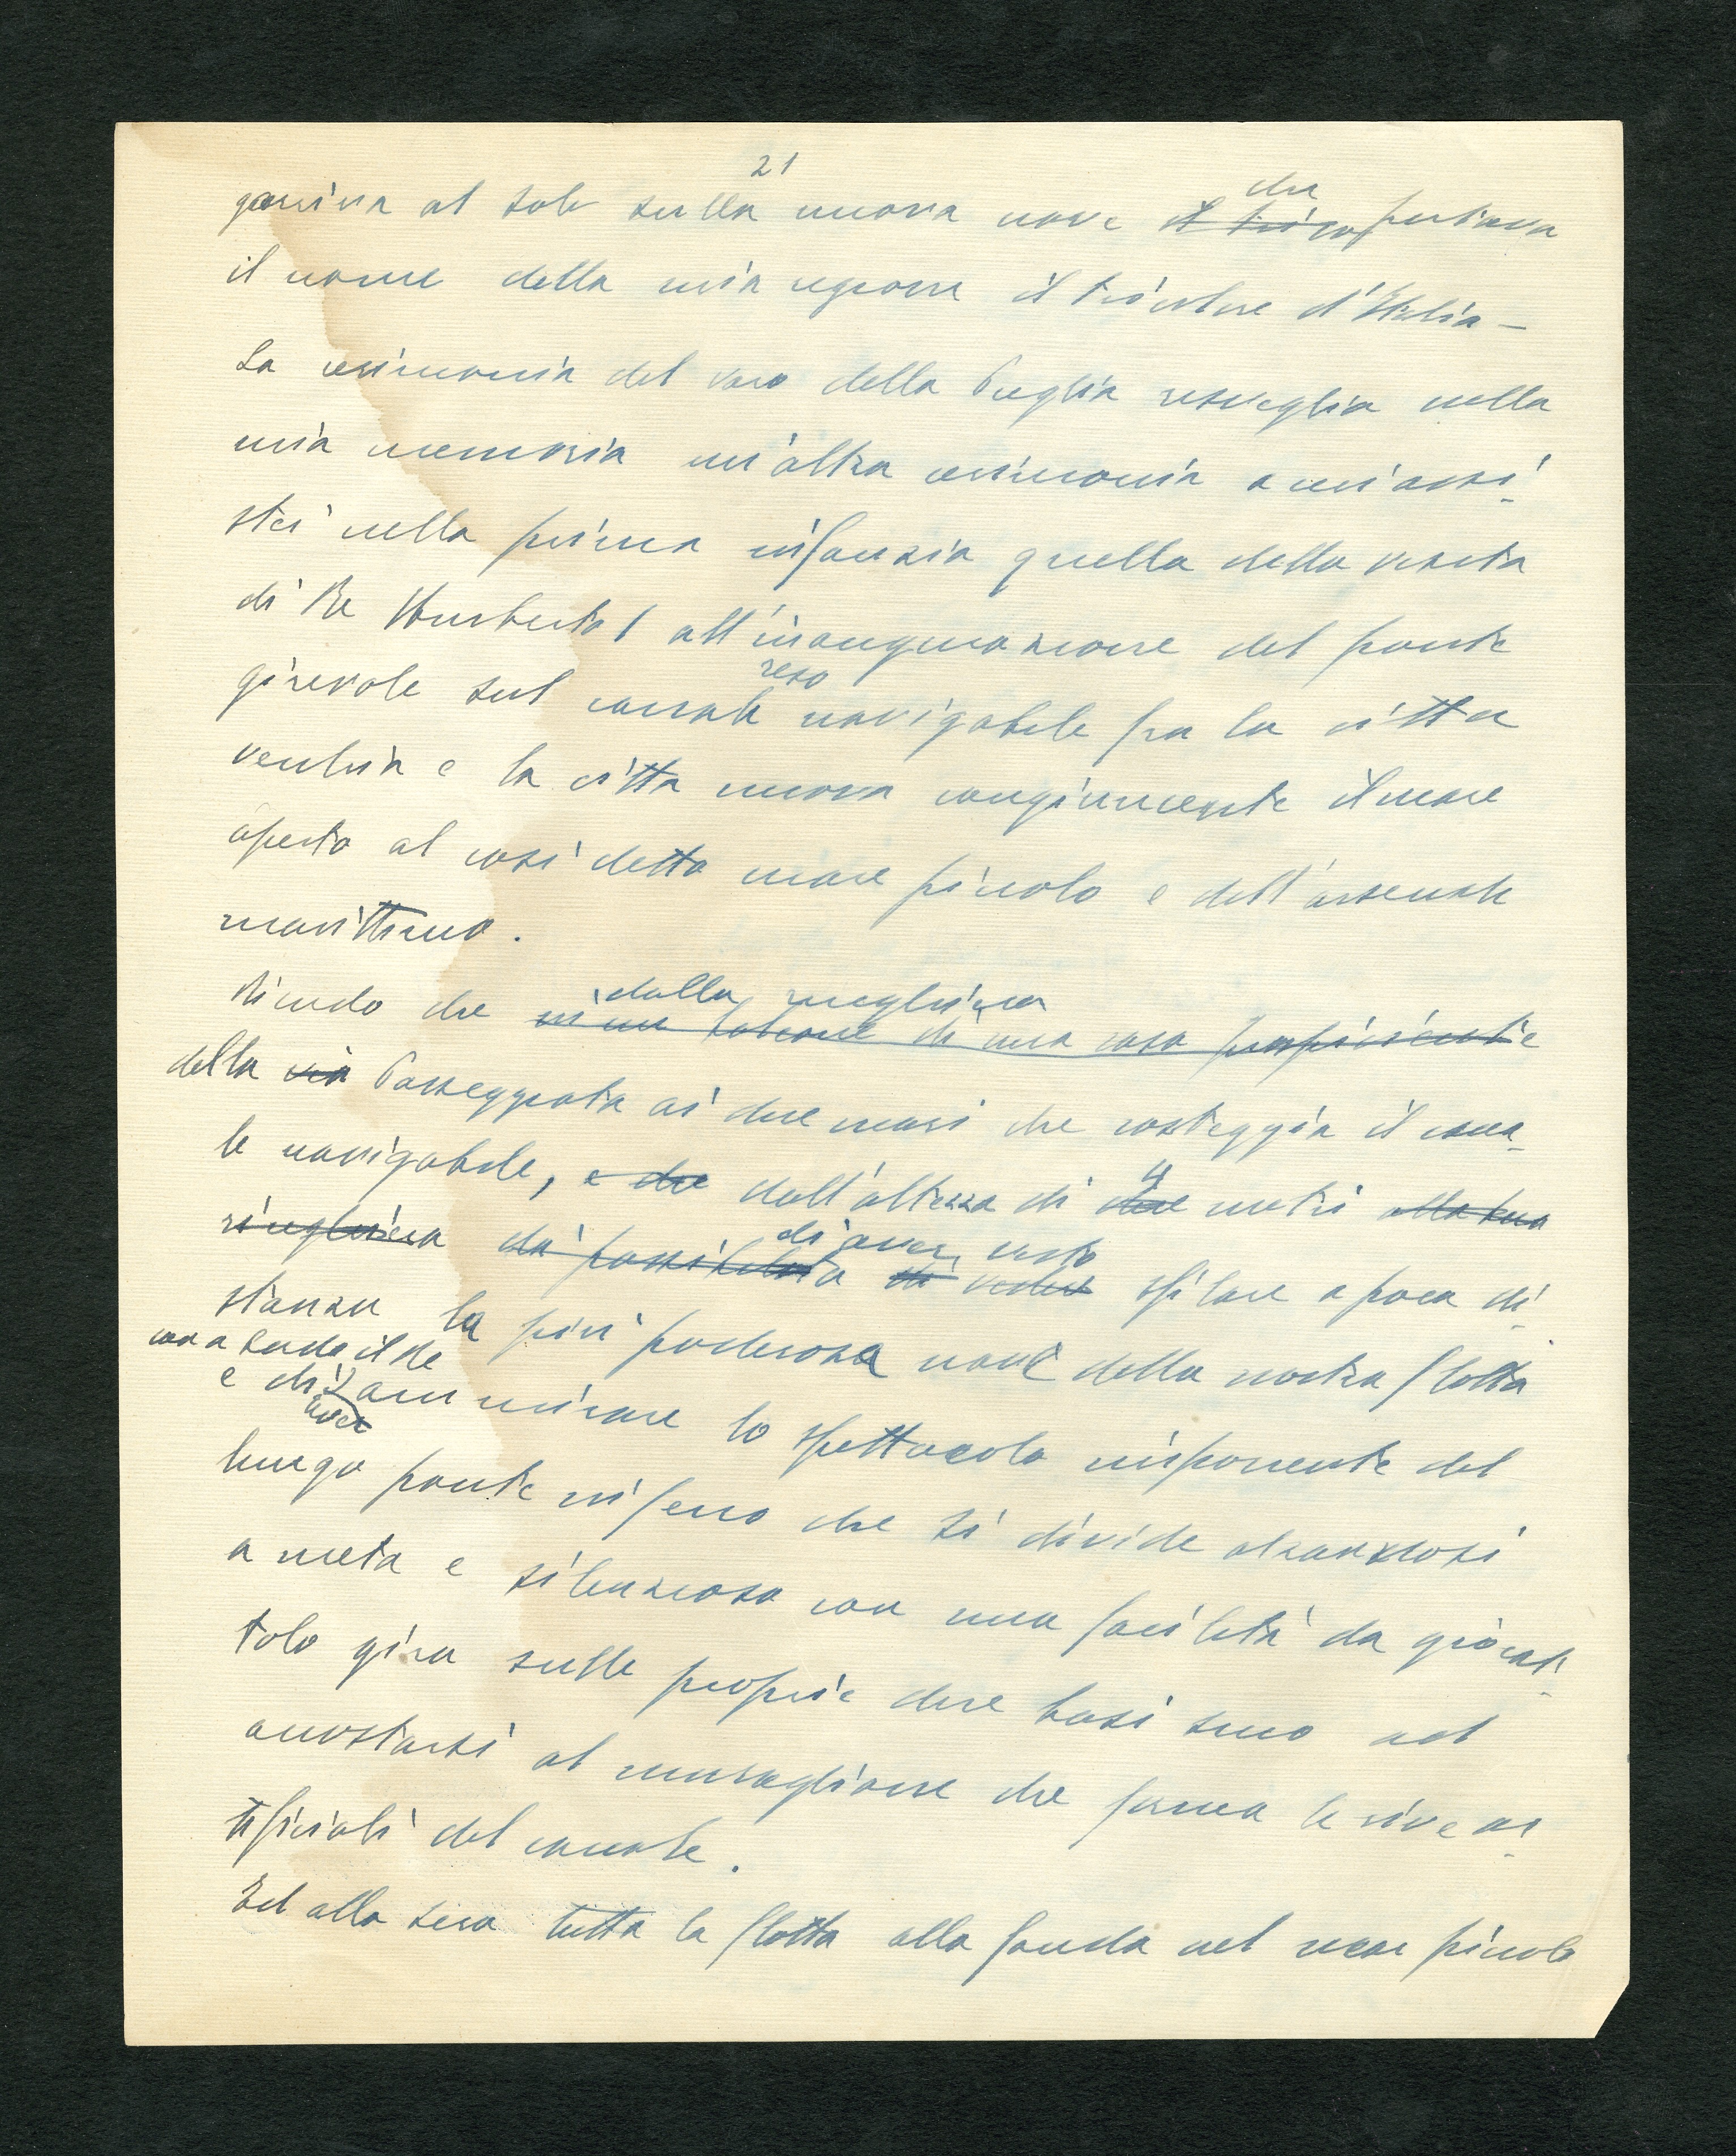 21
garriva al sole sulla nuova nave il trico che portava
il nome della mia regione il tricolore d'Italia -
La cerimonia del varo della Puglia risveglia nella
mia memoria un'altra cerimonia a cui assi-
stei nella prima infanzia quella della visita
di Re Humberto I all'inaugurazione del ponte
girevole sul canale reso navigabile fra la citta
vecchia e la citta nuova congiuncente il mare
aperto al cosi detto mare piccolo e dell'arsenale
marittimo.
Ricordo che in un balcone di una casa prospiciente dalla ringhiera
della via Passeggiata ai due mari che costeggia il cana-
le navigabile, e che dall'altezza di due 4 metri alla sua
ringhiera da possibilita di vedere di aver visto sfilare a poca di-
stanza la piu poderosa nave della nostra flotta
con a bordo il Re
e di aver ammirare lo spettacolo imponente del
lungo ponte in ferro che si divide alzandosi
a meta e silenzioso con una facilità da giocat-
tolo gira sulle proprie due basi sino ad
accostarsi al muraglione che forma le rive ar-
tificiali del canale.
Ed alla sera tutta la flotta alla fonda nel mar piccolo